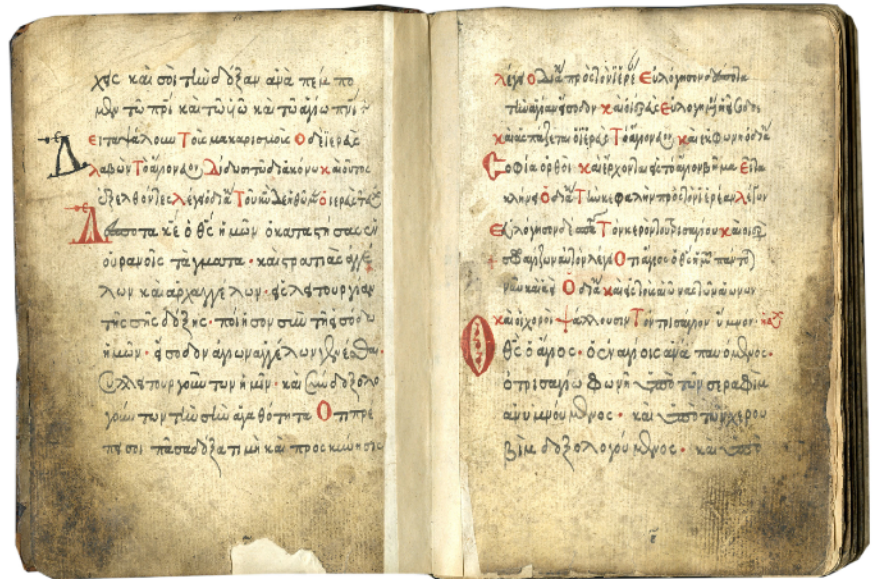 χ̅ς καὶ σοὶ τὴν δόξαν ἀναπέμπο
μεν τῷ πρὶ καὶ τῷ υἱῷ καὶ τῷ ἁγίῳ πνι
Εἶτα ψάλλουσι Τοὺς μακαρισμοὺς Ὁ δὲ ἱερεὺς
λαβὼν Τὸ ἅγιον δίδωσι τῷ διακόνῳ καὶ οὕτως
ἐξελθόντες λέγει ὁ διὰ Τοῦ κυ δεηθῶμεν ὁ ἱερεὺς
Δέσποτα κε ὁ θς ἡμῶν ὁ καταστήσας ἐν
οὐρανοῖς τάγματα · καὶ στρατιὰς ἀγγέ
λων καὶ ἀρχαγγέλων · εἰς λειτουργίαν
τῆς σῆς δόξης · ποίησον σὺν τῇ εἰσόδῳ
ἡμῶν · εἴσοδον ἁγίων ἀγγέλων γενέσθαι ·
συλλειτουργούντων ἡμῖν · καὶ συνδοξολο
γούντων τὴν σὴν ἀγαθότητα Ὅτι πρέ
πει σοι πᾶσα δόξα τιμὴ καὶ προσκύνησις
λέγει Ὁ διὰ πρὸς τὸν ἱερέ Εὐλόγησον δέσποτα
τὴν ἁγίαν εἴσοδον καὶ ὁ ἱερεὺς Εὐλογημένη ἡ εἴσοδος
καὶ ἀσπάζεται ὁ ἱερεὺς Τὸ ἅγιον καὶ ἐκφωνεῖ ὁ διὰ
Σοφία ὀρθοί καὶ ἔρχονται εἰς τὸ ἅγιον βῆμα Εἶτα
κλίνει Ὁ διὰ Τὴν κεφαλὴν πρὸς τὸν ἱερέαν λέγων
Εὐλόγησον δέσποτα Τὸν κερὸν τοῦ τρισαγίου καὶ ὁ ἱερεὺς
σφραγίζων αὐτὸν λέγει Ὅτι ἅγιος ὁ θς ἡμῶν πάντο
νῦν καὶ ἀεὶ Ὁ διὰ καὶ εἰς τοὺς αἰῶνας τῶν αἰώνων
καὶ οἱ χοροὶ ψάλλουσιν Τὸν τρισάγιον ὕμνον
Ὁ θς ὁ ἅγιος · ὁ ἐν ἁγίοις ἀναπαυόμενος ·
ὁ τρισαγίῳ φωνῇ ὑπὸ τῶν σεραφὶμ
ἀνυμνούμενος · καὶ ὑπὸ τῶν χερου
βὶμ δοξολογούμενος · καὶ ὑπὸ